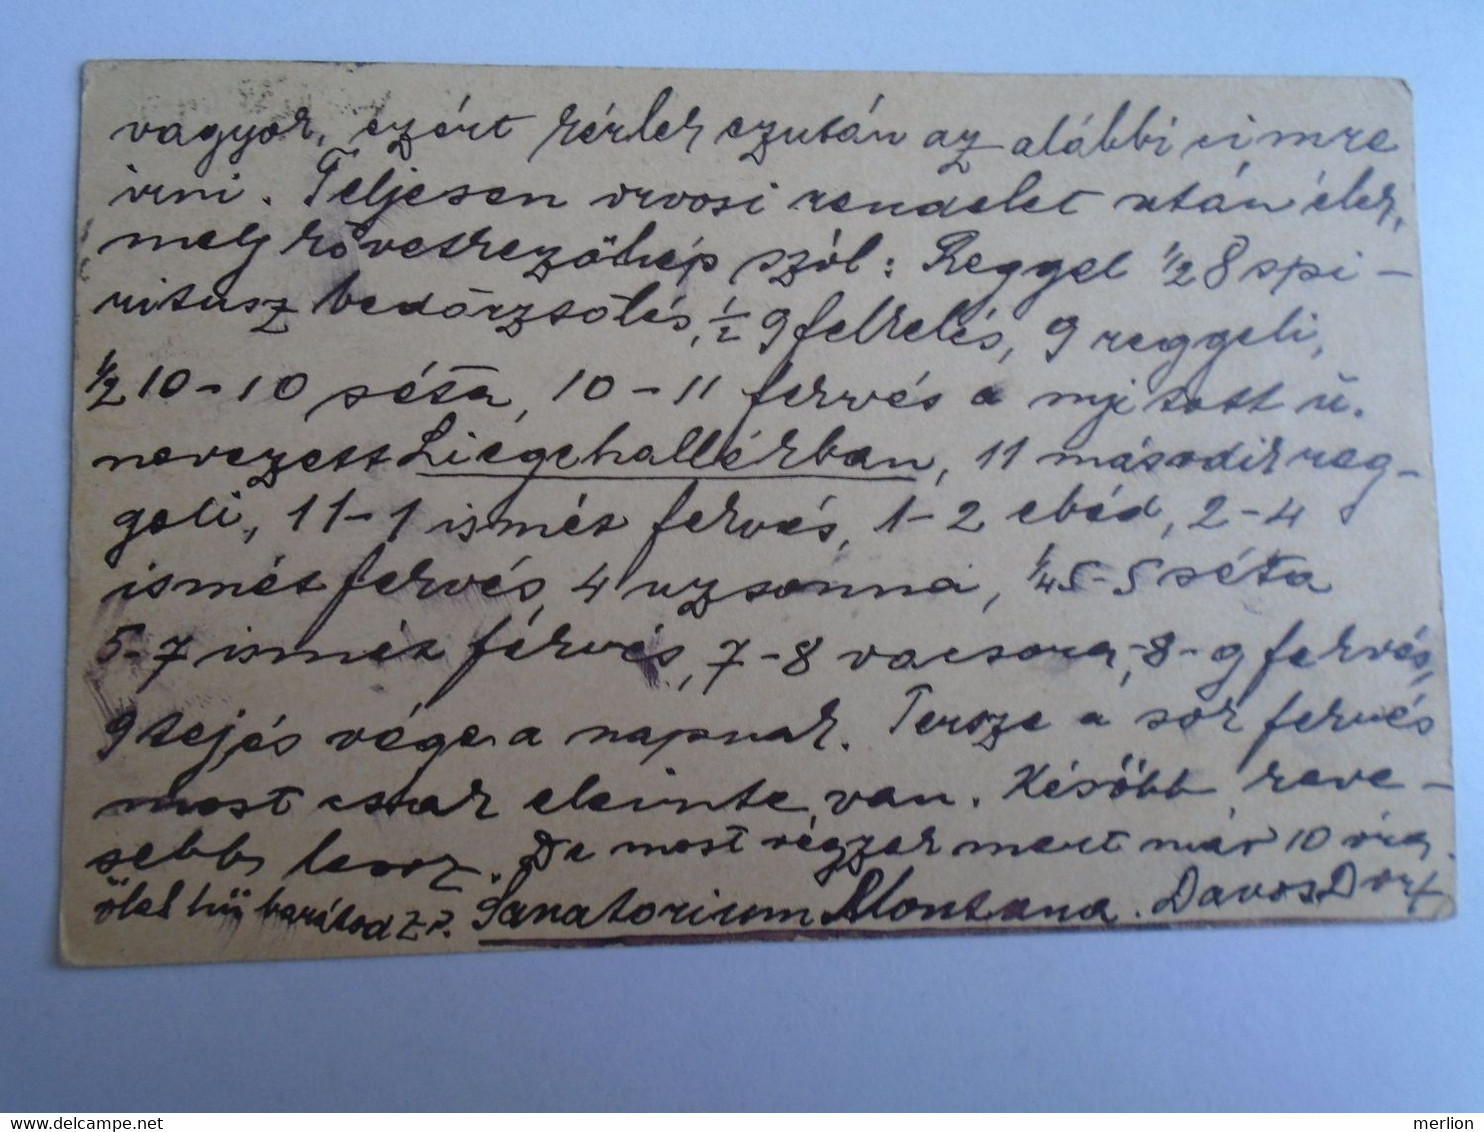 vagyok, ezért kérlek ezután az alábbi cimre
irni. Teljesen orvosi rendelet után élek,
mely következőkép szól: Reggel ½8 spi-
ritusz bedörzsölés, ½9 felkelés, 9 reggeli,
½10-10 séta, 10-11 fekvés a nyitott ú.
nevezett Liegehallérban, 11 második reg-
geli, 11-1 ismét fekvés, 1-2 ebéd, 2-4
ismét fekvés, 4 uzsonna, ¼5-5 séta
5-7 ismét fekvés, 7-8 vacsora, 8-9 fekvés,
9 tej és vége a napnak. Persze a sok fekvés
most csak eleinte van. Később keve-
sebb lesz. De most végzek mert már 10 óra.
ölel hű barátod Z.P. Sanatorium Montana. Davos Dorf
merlion